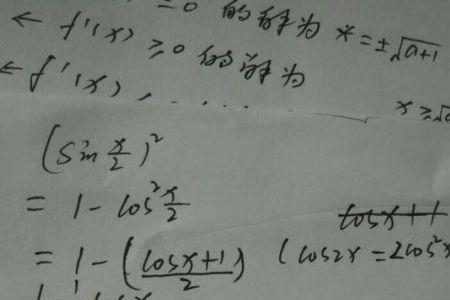 =0 的解为 x=±√(a+1)
← f'(x) ≥0 的解为
← f'(x)
x≥√
(sin x/2)²
= 1-cos² x/2
cosx+1
= 1-((cosx+1)/2) (cos2x=2cos²x